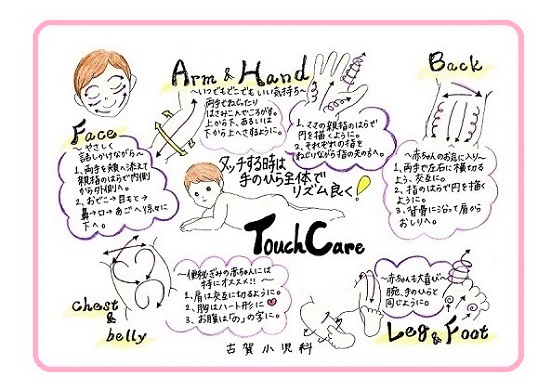 Face
〜やさしく
話しかけながら〜
1、両手を頬へ添えて
親指のはらで内側
から外側へ。
2、おでこ→目もと→
鼻→口→あごへ徐々に
下へ。
Arm & Hand
〜いつでもどこでもいい気持ち〜
両手でねじったり
はさみこんでころがす。
上から下、あるいは
下から上へさするように。
1、ママの親指のはらで
円を描くように。
2、それぞれの指を
ねじりながら指の先の方へ。
Back
〜赤ちゃんのお気に入り〜
1、両手で左右に横切るよう、交互に。
2、指のはらで円を描く
ように。
3、背骨に沿って肩から
おしりへ。
タッチする時は
手のひら全体で
リズム良く!
Touch Care
chest
&
belly
〜便秘ぎみの赤ちゃんには
特にオススメ!!〜
1、肩は交互にするように。
2、胸はハート形に♡
3、お腹は「の」の字に。
〜赤ちゃんも大喜び〜
腕、手のひらと
同じように。
Leg & Foot
古賀小児科